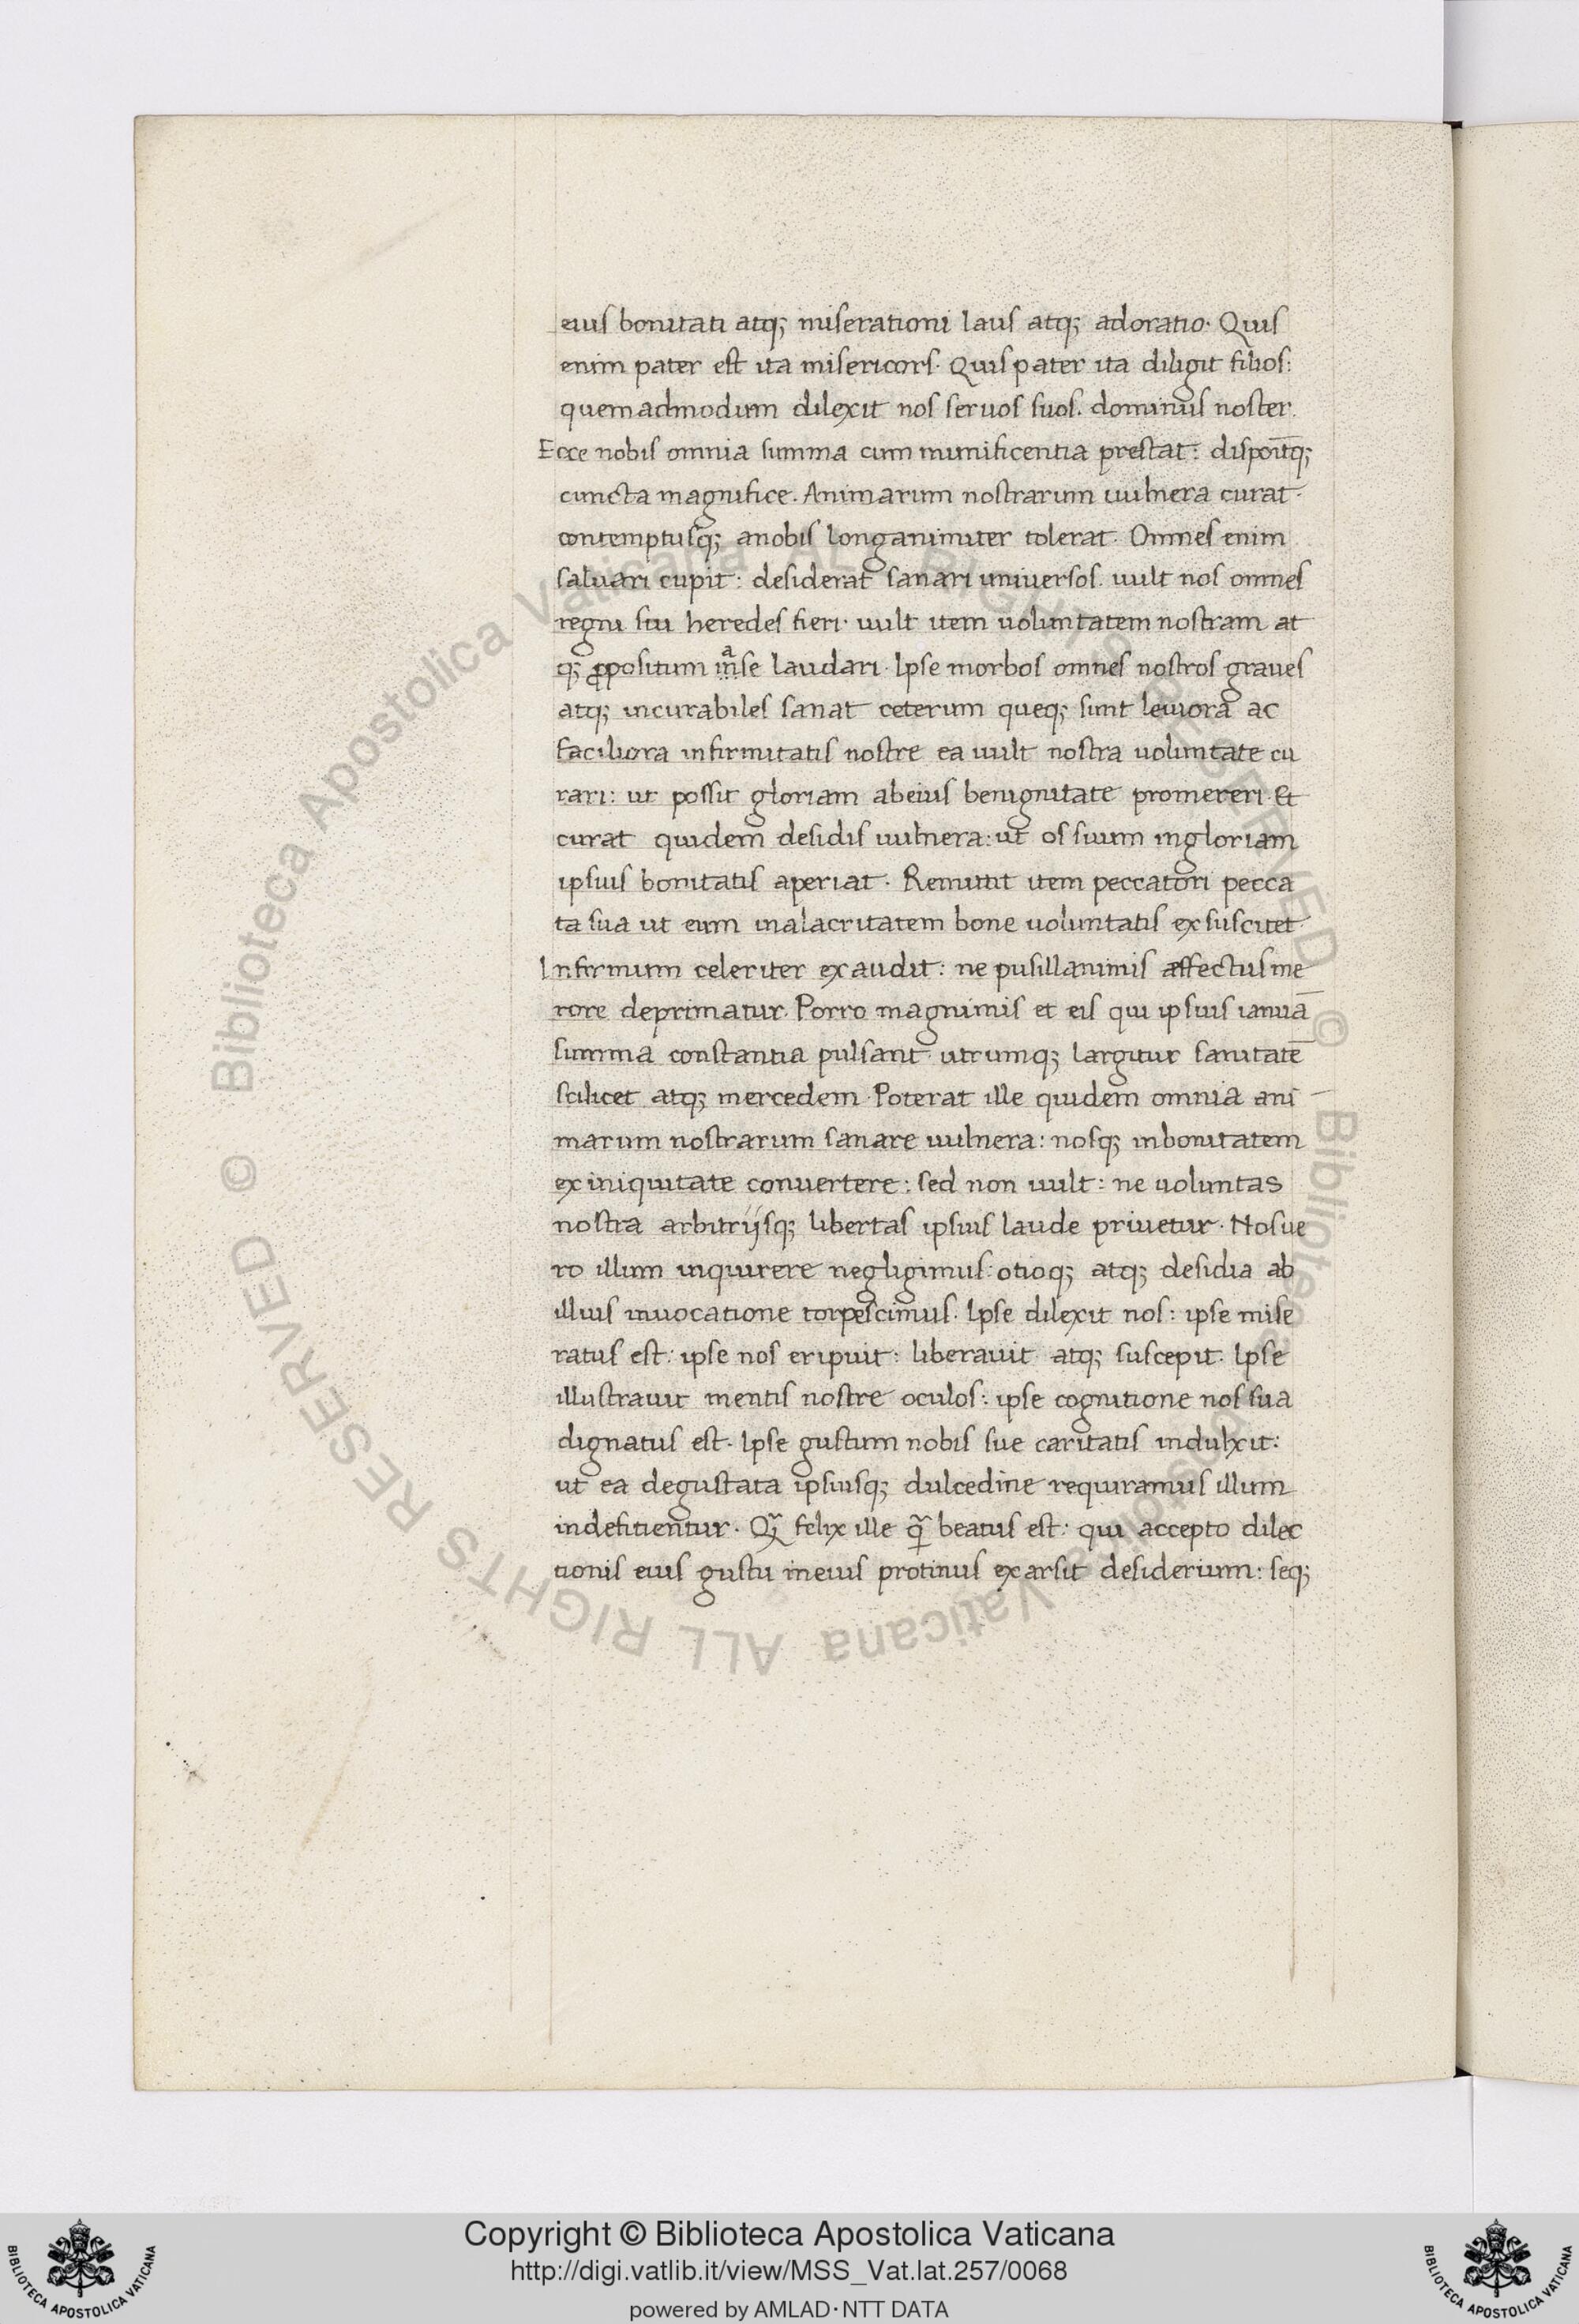 eius bonitati atq; miserationi laus atq; adoratio· Quis
enim pater est ita misericors· Quis pater ita diligit filios:
quemadmodum dilexit nos seruos suos. dominus noster.
Ecce nobis omnia summa cum munificentia prestat: dispoitq;
cuncta magnifice. Animarum nostrarum uulnera curat·
contemptusq; anobis longanimiter tolerat· Omnes enim
saluari cupit: desiderat sanari uniuersos. uult nos omnes
regni sui heredes fieri· uult item uoluntatem nostram at
q; ꝓpositum inase laudari· Ipse morbos omnes nostros graues
atq; incurabiles sanat ceterum queq; sunt leuiora ac
faciliora infirmitatis nostre ea uult nostra uoluntate cu
rari: ut possit gloriam abeius benignitate promereri· Et
curat quidem desidis uulnera: ut os suum ingloriam
ipsius bonitatis aperiat· Remittit item peccatori pecca
ta sua ut eum inalacritatem bone uoluntatis exsuscitet·
Infirmum celeriter exaudit: ne pusillanimis affectus me
rore deprimatur. Porro magnimis et eis qui ipsius ianuā
summa constantia pulsant utrumq; largitur sanitatē
scilicet atq; mercedem· Poterat ille quidem omnia ani
marum nostrarum sanare uulnera: nosq; inbonitatem
ex iniquitate conuertere: sed non uult: ne uoluntas
nostra arbitrijsq; libertas ipsius laude priuetur· Nos ue
ro illum inquirere negligimus: otioq; atq; desidia ab
illius inuocatione torpescimus· Ipse dilexit nos: ipse mise
ratus est: ipse nos eripuit: liberauit atq; suscepit· Ipse
illustrauit mentis nostre oculos: ipse cognitione nos sua
dignatus est· Ipse gustum nobis sue caritatis indulxit:
ut ea degustata ipsiusq; dulcedine requiramus illum
indefitientur· Q̃ felix ille q̃ beatus est: qui accepto dilec
tionis eius gustu ineius protinus exarsit desiderium: seq;
© Biblioteca Apostolica Vaticana ALL RIGHTS RESERVED © Biblioteca Apostolica Vaticana ALL RIGHTS RESERVED
Copyright © Biblioteca Apostolica Vaticana
http://digi.vatlib.it/view/MSS_Vat.lat.257/0068
powered by AMLAD·NTT DATA
BIBLIOTECA APOSTOLICA VATICANA
BIBLIOTECA APOSTOLICA VATICANA